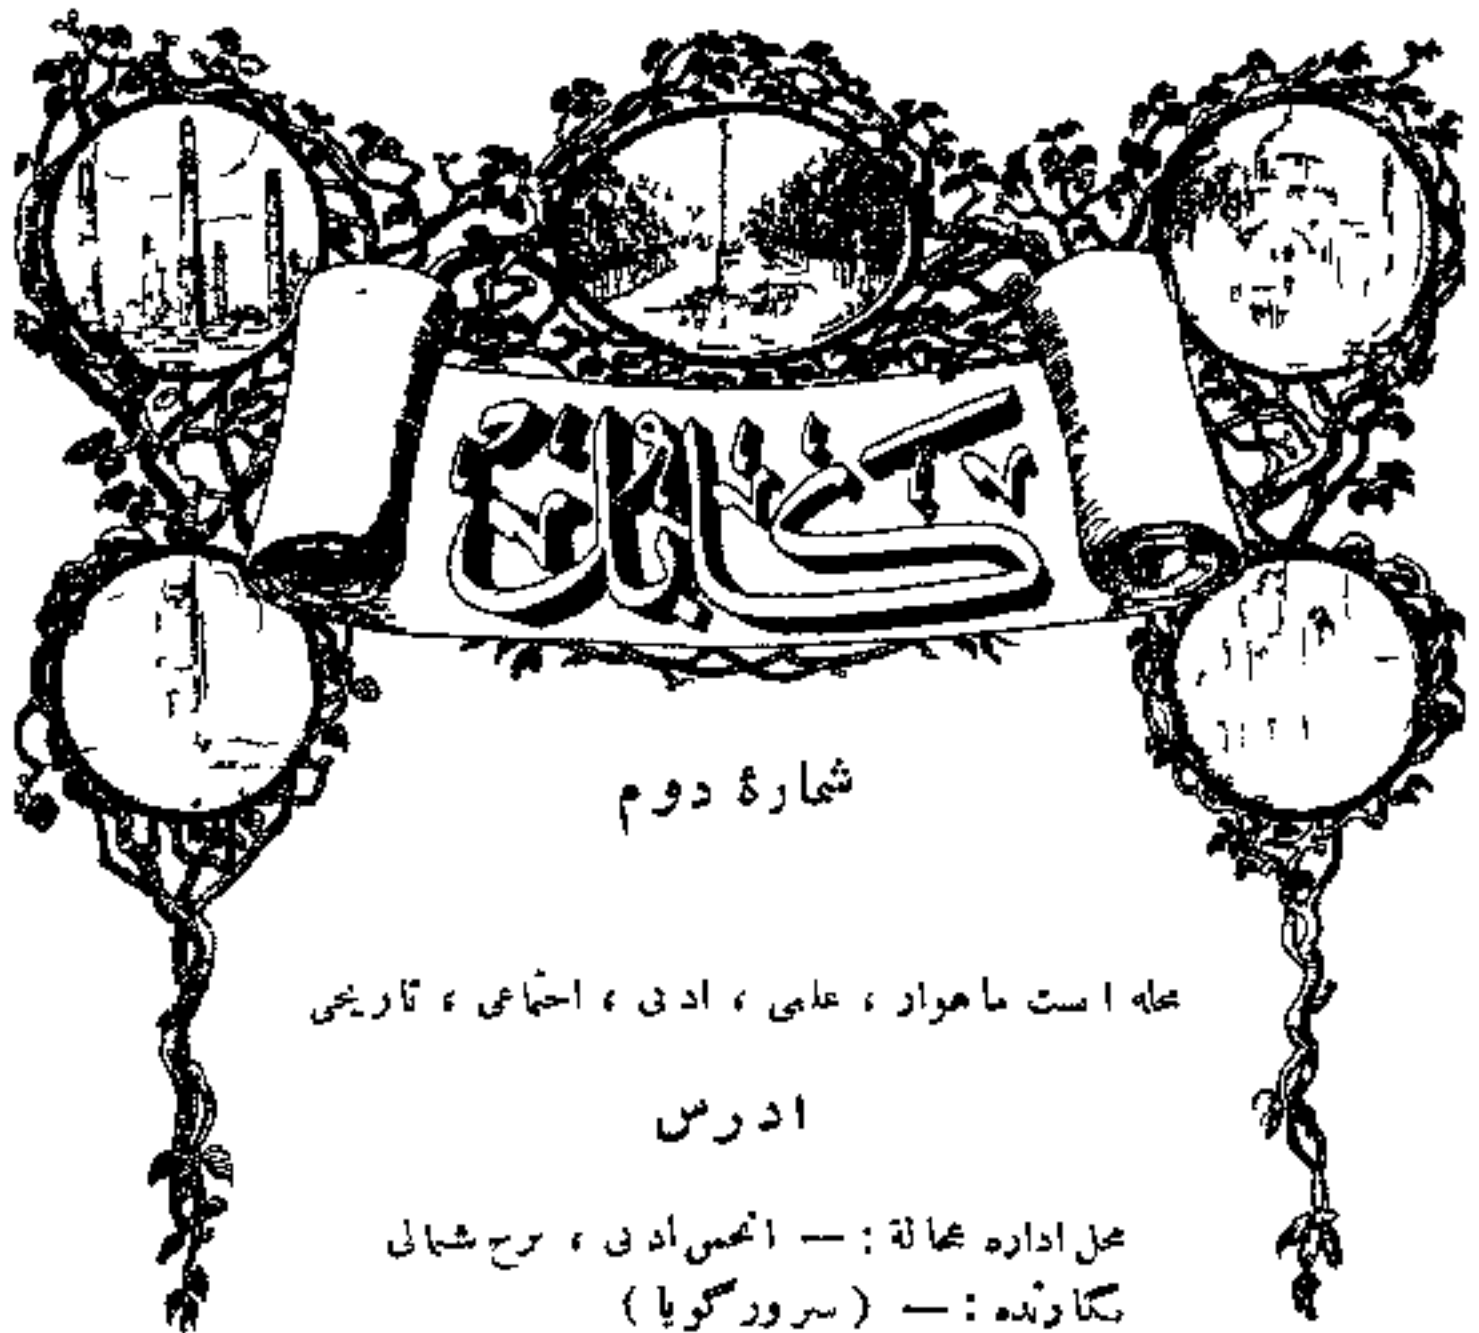 کابل
شمارهٔ دوم
مجله است ماهوار ، علمی ، ادبی ، اجتماعی ، تاریخی
ادرس
محل اداره عجالة : — انجمن ادبی ، برج شمالی
نگارنده : — ( سرور گویا )